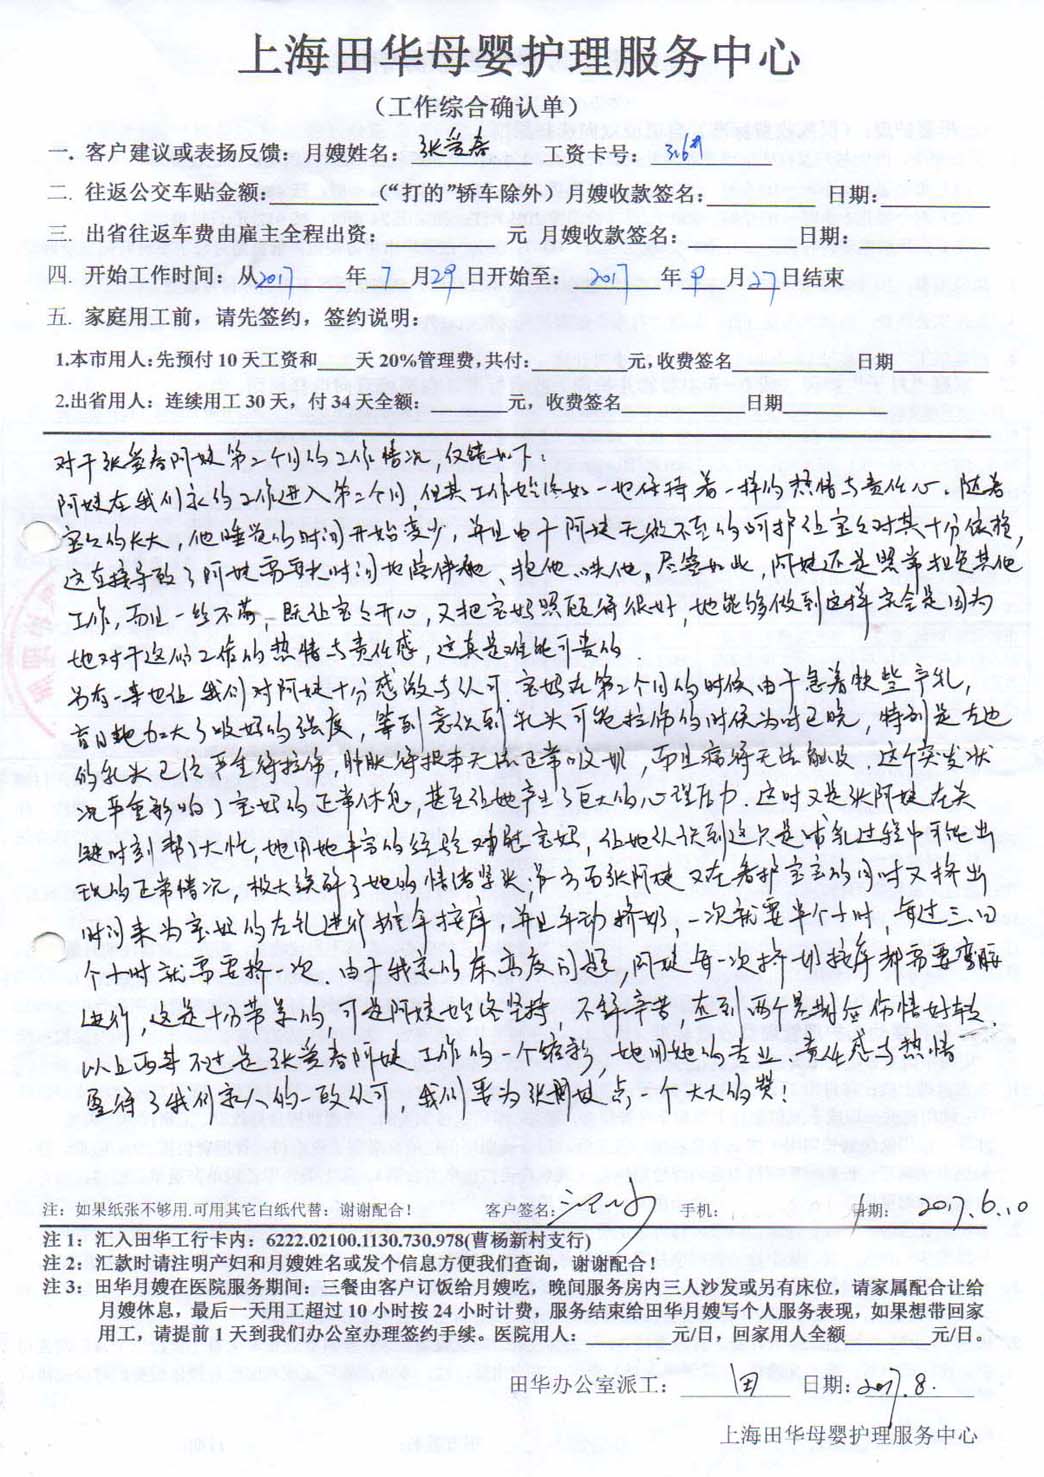 上海田华母婴护理服务中心
（工作综合确认单）
一. 客户建议或表扬反馈：月嫂姓名：张爱春 工资卡号：316#
二. 往返公交车贴金额: （“打的”轿车除外）月嫂收款签名： 日期：
三. 出省往返车费由雇主全程出资： 元 月嫂收款签名： 日期：
四. 开始工作时间：从2017 年 7 月29 日开始至: 2017 年 9 月27日结束
五. 家庭用工前，请先签约，签约说明：
1.本市用人:先预付 10 天工资和 天 20%管理费,共付: 元,收费签名 日期
2.出省用人：连续用工 30 天，付 34 天全额: 元，收费签名 日期
对于张爱春阿姨第二个月的工作情况，总结如下：
阿姨在我们家的工作进入第二个月，但其工作始终如一地保持着一样的热情与责任心。随着
宝宝的长大，他睡觉的时间开始变少，并且由于阿姨无微不至的呵护让宝宝对其十分依赖，
这直接导致了阿姨需要长时间地陪伴他、抱他、哄他。尽管如此，阿姨还是照常担负其他
工作，而且一丝不苟，既让宝宝开心，又把宝妈照顾得很好，她能够做到这样完全是因为
她对于这份工作的热情与责任感，这真是难能可贵的.
另有一事也让我们对阿姨十分感激与认可. 宝妈在第二个月的时候由于急着快些产乳，
盲目地加大了吸奶的强度，等到意识到乳头可能拉伤的时候为时已晚，特别是左边
的乳头已经严重得拉伤，肿胀得根本无法正常吸奶，而且痛得无法触及. 这个突发状
况严重影响了宝妈的正常休息，甚至让她产生了巨大的心理压力. 这时又是张阿姨在关
键时刻帮了大忙，她用她丰富的经验 宝妈，让她认识到这只是哺乳过程中可能出
现的正常情况，极大缓解了她的情绪紧张；另一方面张阿姨又在看护宝宝的同时又挤出
时间来为宝妈的左乳进行 按摩，并且手动挤奶，一次就要半个小时，每过三、四
个小时就需要挤一次. 由于我家的床高度问题，阿姨每一次挤奶按摩都需要弯腰
进行，这是十分劳累的，可是阿姨始终坚持，不辞辛苦，直到两个星期后伤情好转.
以上两事不过是张爱春阿姨工作的一个缩影，她用她的专业、责任感与热情
赢得了我们家人的一致认可，我们要为张阿姨点一个大大的赞.
注：如果纸张不够用.可用其它白纸代替：谢谢配合！ 客户签名: 手机： 日期: 2017.6.10
注 1：汇入田华工行卡内：6222.02100.1130.730.978(曹杨新村支行)
注 2：汇款时请注明产妇和月嫂姓名或发个信息方便我们查询，谢谢配合！
注 3：田华月嫂在医院服务期间：三餐由客户订饭给月嫂吃，晚间服务房内三人沙发或另有床位，请家属配合让给
月嫂休息，最后一天用工超过 10 小时按 24 小时计费，服务结束给田华月嫂写个人服务表现，如果想带回家
用工，请提前 1 天到我们办公室办理签约手续。医院用人： 元/日，回家用人全额 元/日。
田华办公室派工： 田 日期: 2017.8.
上海田华母婴护理服务中心